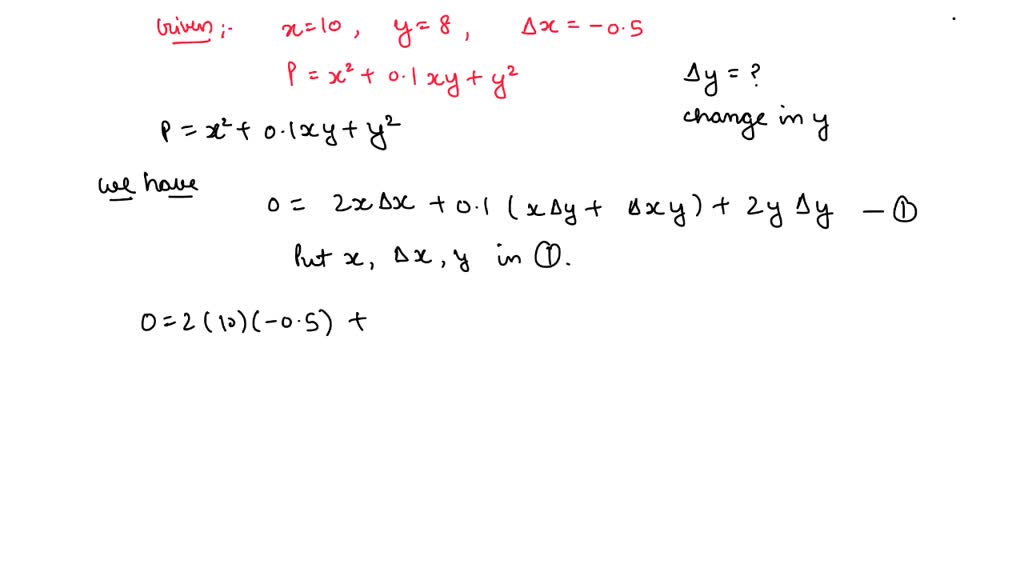 Given :- x=10, y=8, Δx=-0.5
P = x² + 0.1xy + y²
Δy = ?
change in y
P = x² + 0.1xy + y²
we have
0 = 2xΔx + 0.1(xΔy + Δxy) + 2yΔy — ①
Put x, Δx, y in ①.
0 = 2(10)(-0.5) +